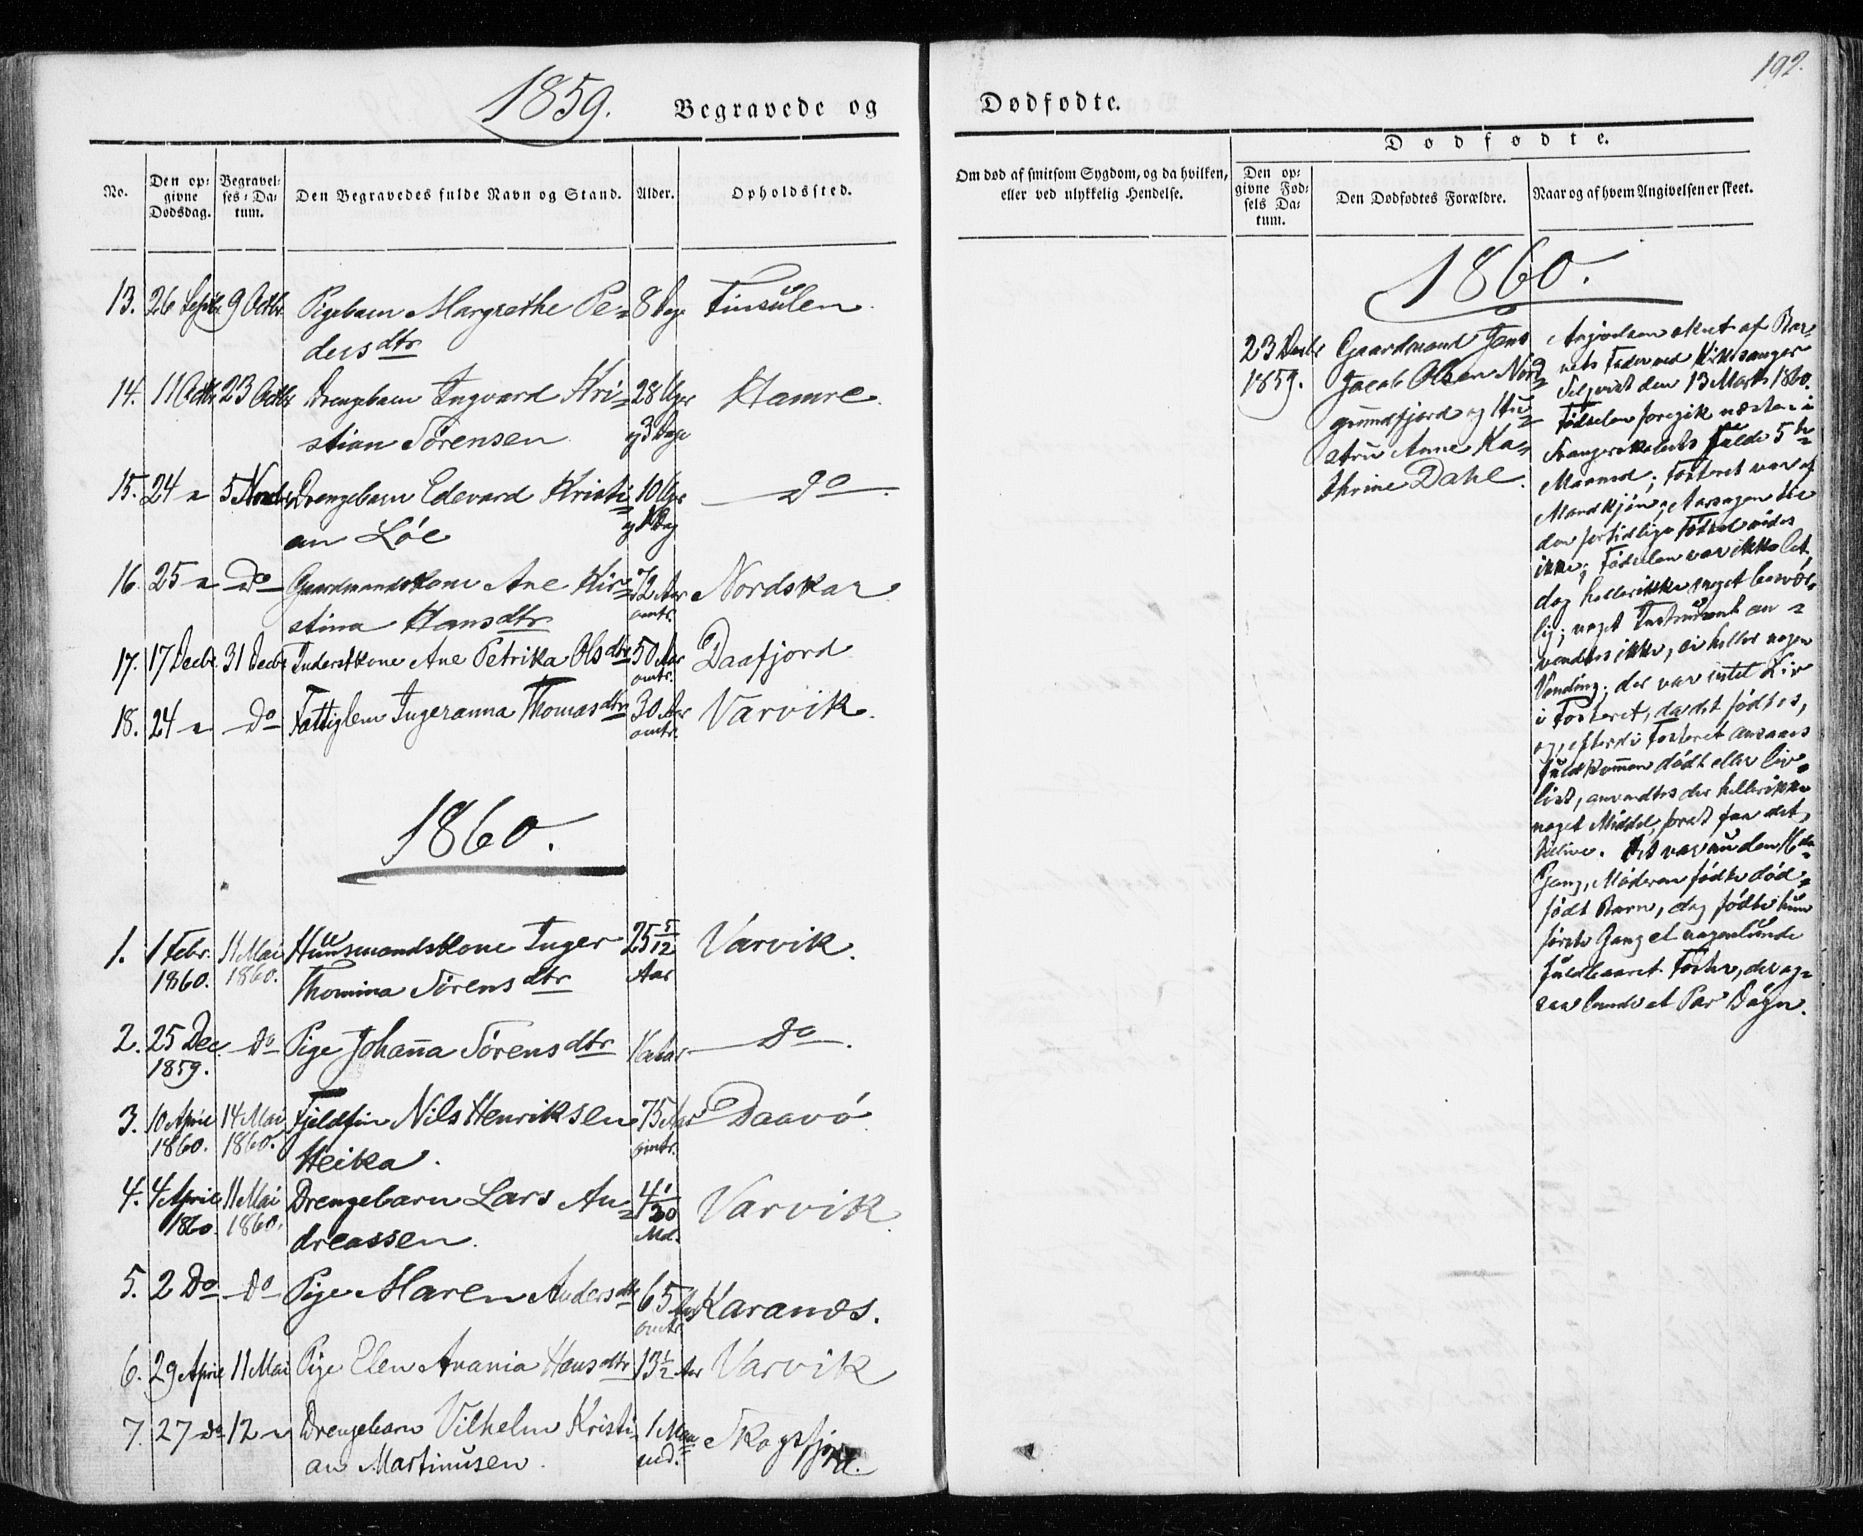 1859.
Begravede og
No.
Den opgivne Dødsdag.
Begravelses-Datum.
Den Begravedes fulde Navn og Stand.
Alder.
Opholdssted.
13. 26 Septbr. 9 Octbr. Pigebarn Margrethe Pe= 8 Dage Finsulen.
dersdtr
14. 11 Octbr 23 Octbr Drengebarn Ingvard Kri= 28 Uger Hamre.
stian Sørensen og 3 Dage
15. 24 " 5 Novbr Drengebarn Edevard Kristi= 10 Uger Do.
an Løe og 1 Dag
16. 25 " Do Gaardmandskone Ane Kir= 72 Aar Nordskar
stina Hansdtr omtr.
17. 17 Decbr. 31 Decbr Inderstkone Ane Petrika Olsdtr 50 Aar Daafjord
omtr.
18. 24 " Do Fattiglem Ingeranna Thomasdtr 30 Aar Varvik.
omtr.
1860.
1. 1 Febr. 11 Mai Huusmandskone Inger 25 5/12 Varvik.
1860. 1860. Thomina Sørensdtr Aar
2. 25 Dec. Do Pige Johanna Sørensdtr Do.
1859.
3. 10 April 14 Mai Fjeldfin Nils Henriksen 75 Aar Daavø
1860. 1860. Heika. omtr.
4. 4 April 11 Mai Drengebarn Lars An= 4 1/30 Varvik
1860. 1860. dreassen. Md.
5. 2 Do Do Pige Maren Andersdtr 65 Aar Karanæs.
omtr.
6. 29 April 11 Mai Pige Elen Anania Hansdtr 13 1/2 Aar Varvik
7. 27 Do 12 " Drengebarn Vilhelm Kristi= 1 Maa= Skogsfjord.
an Martinusen. ned.
192.
Dødfødte.
Om død af smitsom Sygdom, og da hvilken,
eller ved ulykkelig Hendelse.
Dødfødte.
Den opgivne Fødsels Datum.
Den Dødfødtes Forældre.
Naar og af hvem Angivelsen er skeet.
1860.
23 Decbr
1859.
Gaardmand Jens
Jacob Olsen Nord=
grundfjord og Hu=
stru Anne Ka=
thrine Dahl.
Angivelsen skeet af Bar=
nets Fader ved Kirkesanger
den 13 Marts 1860.
Fødselen foregik næsten i
Svangerskabets fulde 5te
Maaned; Fosteret var af
Mandkjøn; Aarsagen til
den fortidlige Fødsel vides
ikke; Fødselen var ikke let,
dog heller ikke meget besvær=
lig; noget Instrument an=
vendtes ikke, ei heller nogen
Vending; der var intet Liv
i Fosteret, da det fødtes,
og, efterdi Fosteret ansaaes
fuldkommen dødt eller liv=
løst, anvendtes der heller ikke
noget Middel, for at faa det
tillive. Det var nu den
Gang, Moderen fødte død=
født Barn, dog fødte hun
første Gang et nogenlunde
fuldbaaret Foster, der og=
saa levede et Par Døgn.